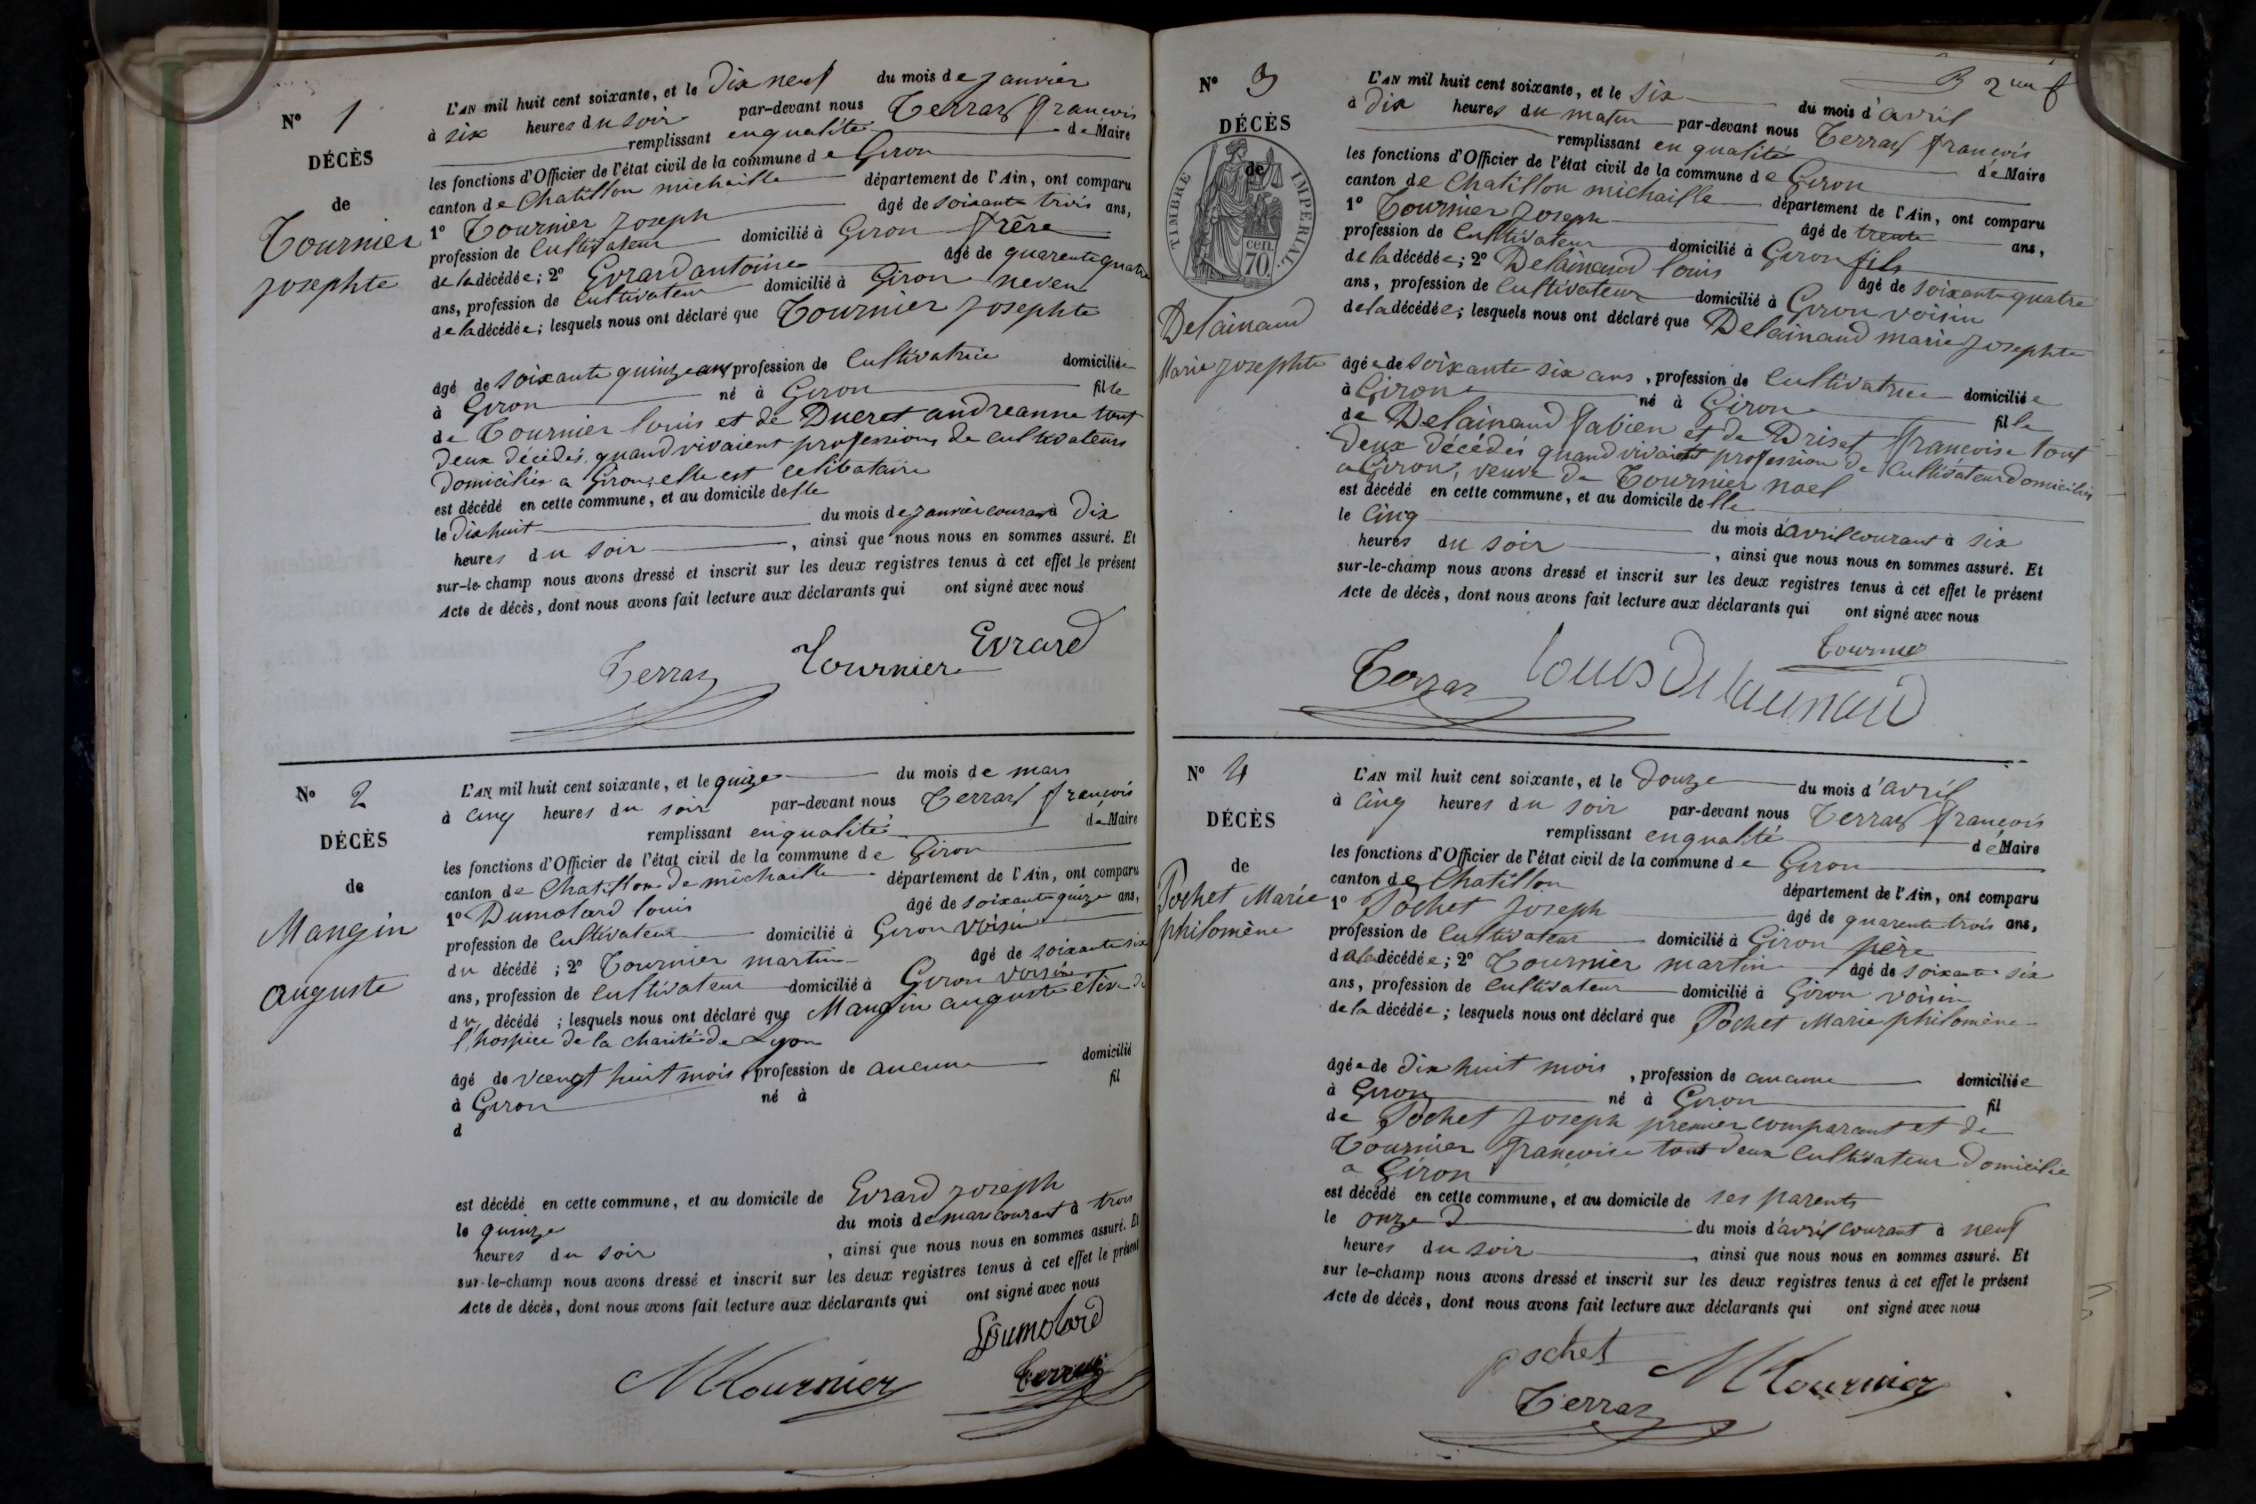 N° 1
DÉCÈS
de
Tournier
josephte
L'AN mil huit cent soixante, et le Dix neuf du mois de janvier
à six heures du soir par-devant nous Terraz françois
remplissant enqualité de Maire
les fonctions d'Officier de l'état civil de la commune de Giron
canton de Chatillon michaille département de l'Ain, ont comparu
1° Tournier joseph âgé de soixante trois ans,
profession de Cultivateur domicilié à Giron frère
de la décédée; 2° Evrard antoine âgé de quarente quatre
ans, profession de Cultivateur domicilié à Giron neveu
de la décédée; lesquels nous ont déclaré que Tournier josephte
âgé de soixante quinze ans, profession de Cultivatrice domiciliée
à Giron né à Giron fille
de Tournier louis et de Ducret andreanne tout
deux décédés, quand vivaient professions de cultivateurs
domiciliés a Giron; elle est celibataire
est décédé en cette commune, et au domicile delle
le dix huit du mois de janvier courant à Dix
heures du soir, ainsi que nous nous en sommes assuré. Et
sur-le-champ nous avons dressé et inscrit sur les deux registres tenus à cet effet le présent
Acte de décès, dont nous avons fait lecture aux déclarants qui ont signé avec nous
Terraz Tournier Evrard
N° 2
DÉCÈS
de
Mangin
auguste
L'AN mil huit cent soixante, et le quize du mois de mars
à cinq heures du soir par-devant nous Terraz françois
remplissant enqualité de Maire
les fonctions d'Officier de l'état civil de la commune de Giron
canton de Chatillon de michaille département de l'Ain, ont comparu
1° Dumolard louis âgé de soixante quize ans,
profession de Cultivateur domicilié à Giron voisin
du décédé ; 2° Tournier martin âgé de soixante six
ans, profession de Cultivateur domicilié à Giron voisin
du décédé ; lesquels nous ont déclaré que Mangin auguste eleve de
l'hospice de la charité de Lyon
âgé de vœngt huit mois, profession de aucune domicilié
à Giron né à fil
d
est décédé en cette commune, et au domicile de Evrard joseph
le quinze du mois de mars courant à trois
heures du soir, ainsi que nous nous en sommes assuré. Et
sur-le-champ nous avons dressé et inscrit sur les deux registres tenus à cet effet le présent
Acte de décès, dont nous avons fait lecture aux déclarants qui ont signé avec nous
Dumolard
MTournier Terraz
N° 3
DÉCÈS
de
TIMBRE IMPERIAL
cen. 70.
Delainaud
Marie josephte
L'AN mil huit cent soixante, et le six du mois d'avril
à dix heures du matin par-devant nous Terraz françois
remplissant en qualité de Maire
les fonctions d'Officier de l'état civil de la commune de Giron
canton de Chatillon michaille département de l'Ain, ont comparu
1° Tournier joseph âgé de trente ans,
profession de Cultivateur domicilié à Giron fils
de la décédée; 2° Delainaud louis âgé de soixante quatre
ans, profession de Cultivateur domicilié à Giron voisin
de la décédée; lesquels nous ont déclaré que Delainaud marie josephte
âgée de soixante six ans, profession de Cultivatrice domiciliée
à Giron né à Giron fille
de Delainaud fabien et de Driset françoise tout
deux décédés quand vivaient profession de Cultivateur domicilies
a Giron, veuve de Tournier noel
est décédé en cette commune, et au domicile delle
le cinq du mois d'avril courant à six
heures du soir, ainsi que nous nous en sommes assuré. Et
sur-le-champ nous avons dressé et inscrit sur les deux registres tenus à cet effet le présent
Acte de décès, dont nous avons fait lecture aux déclarants qui ont signé avec nous
Tournier
Terraz louis Delainaud
N° 4
DÉCÈS
de
Pochet Marie
philomène
L'AN mil huit cent soixante, et le douze du mois d'avril
à cinq heures du soir par-devant nous Terraz françois
remplissant enqualité de Maire
les fonctions d'Officier de l'état civil de la commune de Giron
canton de Chatillon département de l'Ain, ont comparu
1° Pochet joseph âgé de quarente trois ans,
profession de Cultivateur domicilié à Giron père
de la décédée; 2° Tournier martin âgé de soixante six
ans, profession de Cultivateur domicilié à Giron voisin
de la décédée; lesquels nous ont déclaré que Pochet Marie philomène
âgée de dix huit mois, profession de aucune domiciliée
à Giron né à Giron fil
de Pochet joseph premier comparant et de
Tournier françoise tout deux Cultivateur domicilie
a Giron
est décédé en cette commune, et au domicile de ses parents
le onze du mois d'avril courant à neuf
heures du soir, ainsi que nous nous en sommes assuré. Et
sur le-champ nous avons dressé et inscrit sur les deux registres tenus à cet effet le présent
Acte de décès, dont nous avons fait lecture aux déclarants qui ont signé avec nous
pochet MTournier
Terraz